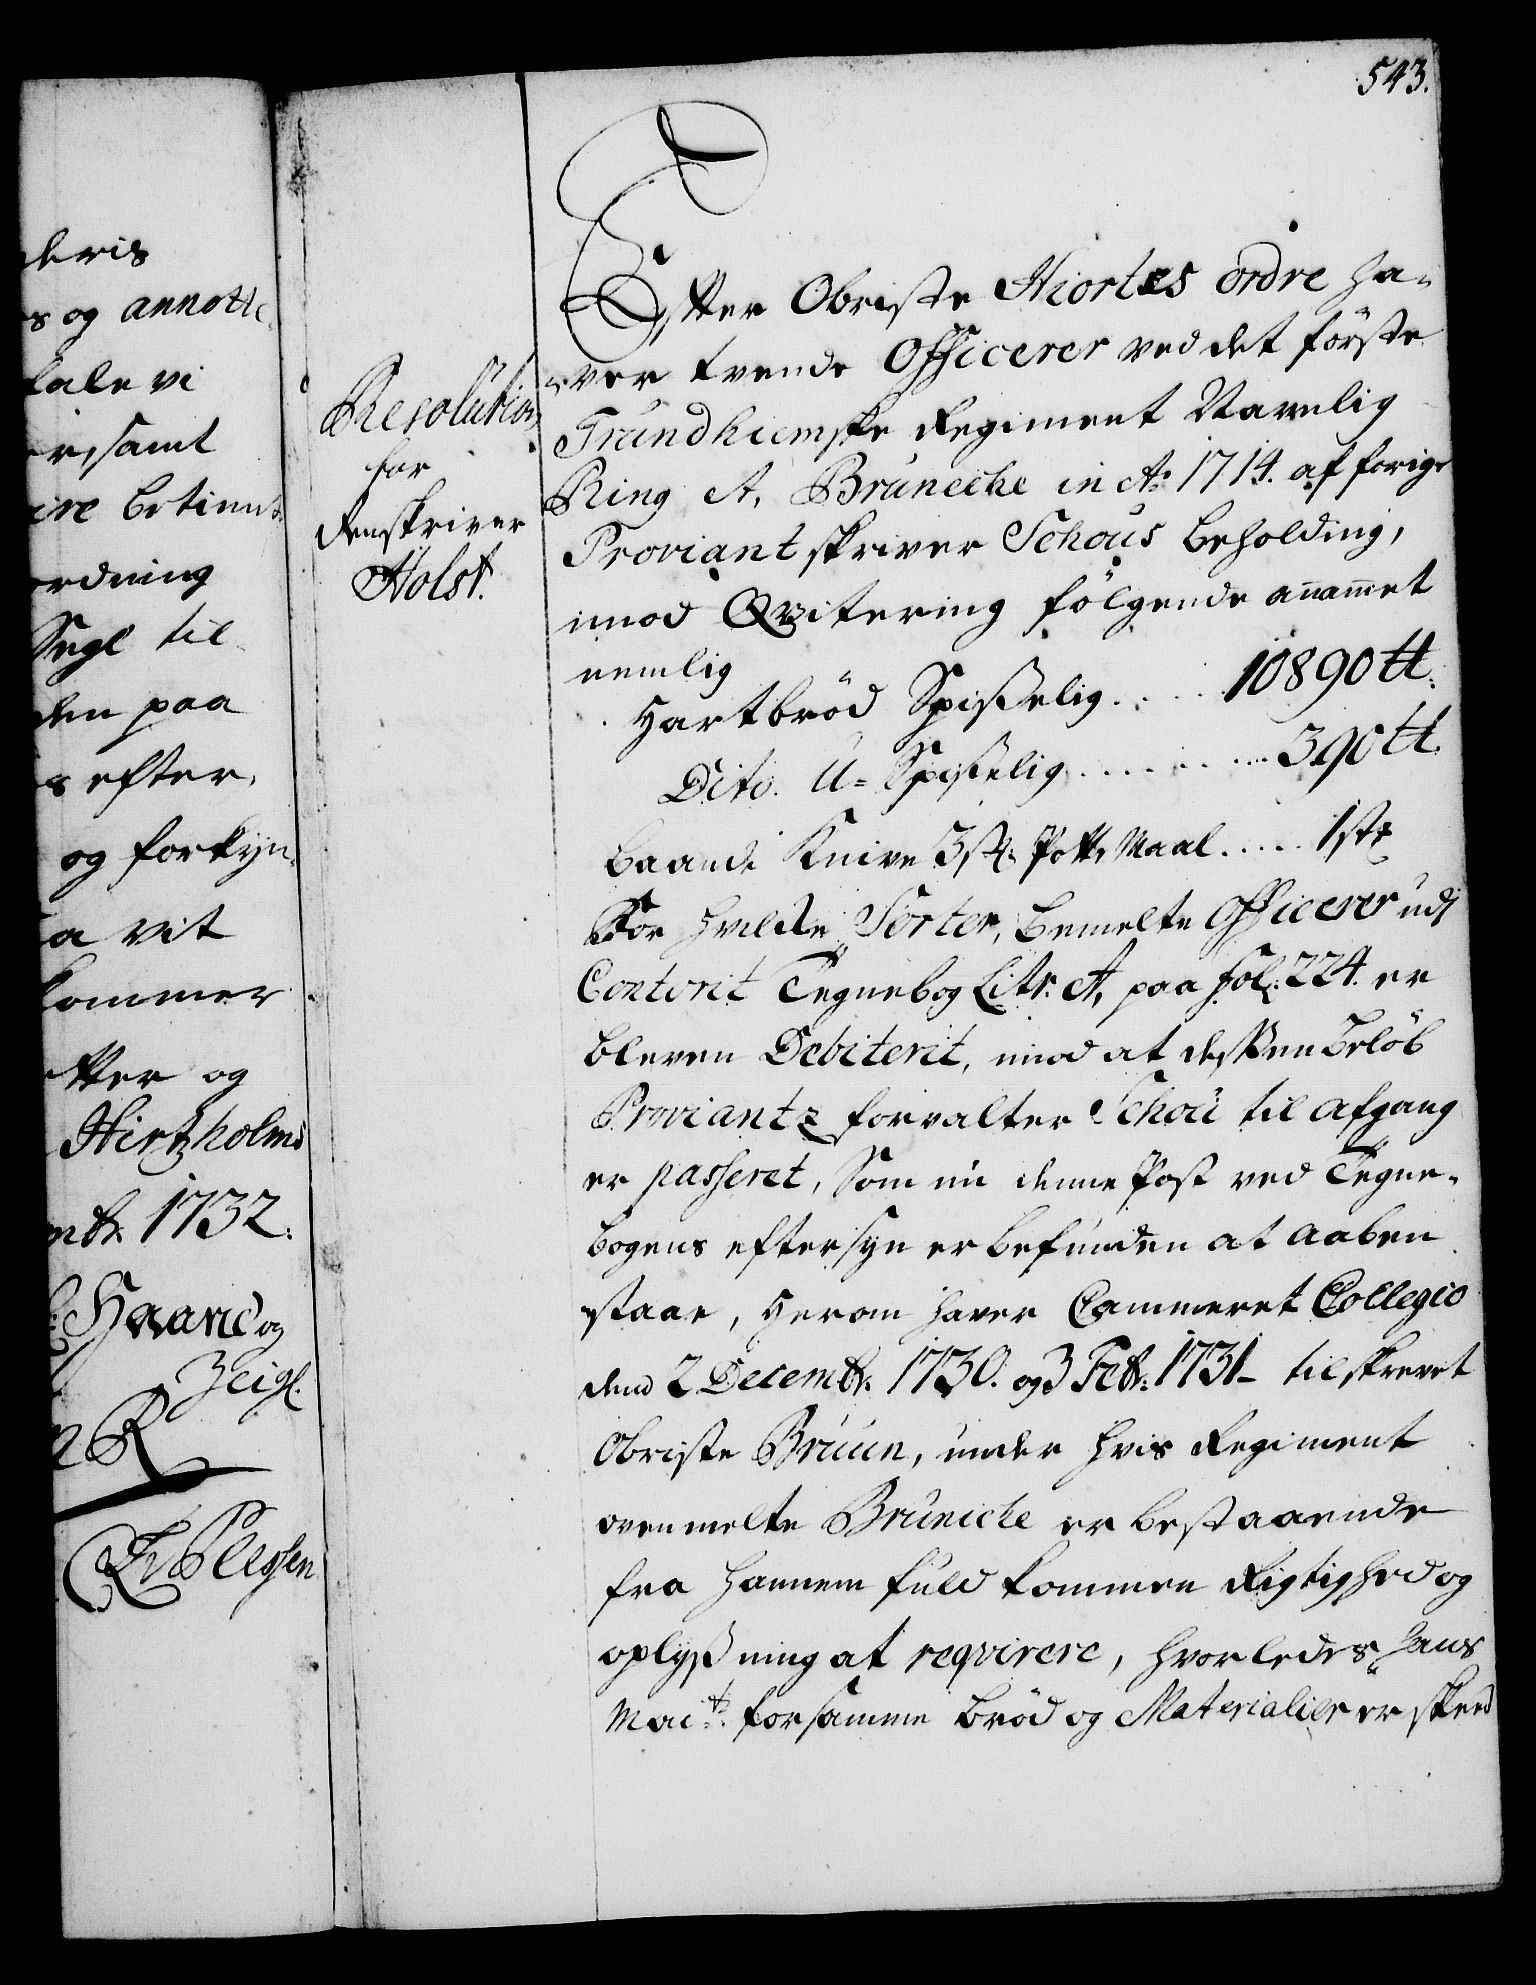 543.
deris
s og annotte
tale vi
r, samt
ire betient
ordning
Segl til
den paa
s efter,
og forkyn-
a vit
kommer
tter og
Hirtzholms
mbr. 1732.
Haand og
Zeigl.
R
CAvPlessen
Resolution
for
Renskriver
Holst.
Efter Obriste Hiortes ordre ha-
ver tvende Officerer ved det förste
Trundhiemske Regiment Navnlig
Ring & Bruneche in Ao 1714. af forige
Proviantskriver Schous beholding,
imod Qvitering fölgende anammet
nemlig
Hartbröd Spisselig..... 10890 tt.
Dito. U=Spisselig......... 390 tt.
baande Knive 3 st. Potte Maal..... 1 stk
For hvilke Sorter, bemelte Officerer udi
Contorit Tegnebog Litr. A, paa fol. 224. er
bleven Debiterit, imod at dessen Belöb
Proviantz forvalter Schou til afgang
er passeret, Som nu denne Post ved Tegne-
bogens eftersyn er befunden at aaben
staae, herom haver Cammeret Collegio
dend 2 Decembr. 1730. og 3 Febr. 1731 tilskrevet
Obriste Bruun, under hvis Regiment
ovenmelte Bruniche er bestaaende
fra hannem fuldkommen Rigtighed og
oplyssning at reqvirere, hvorledes hans
Mait. for samme bröd og Materialier er skeed